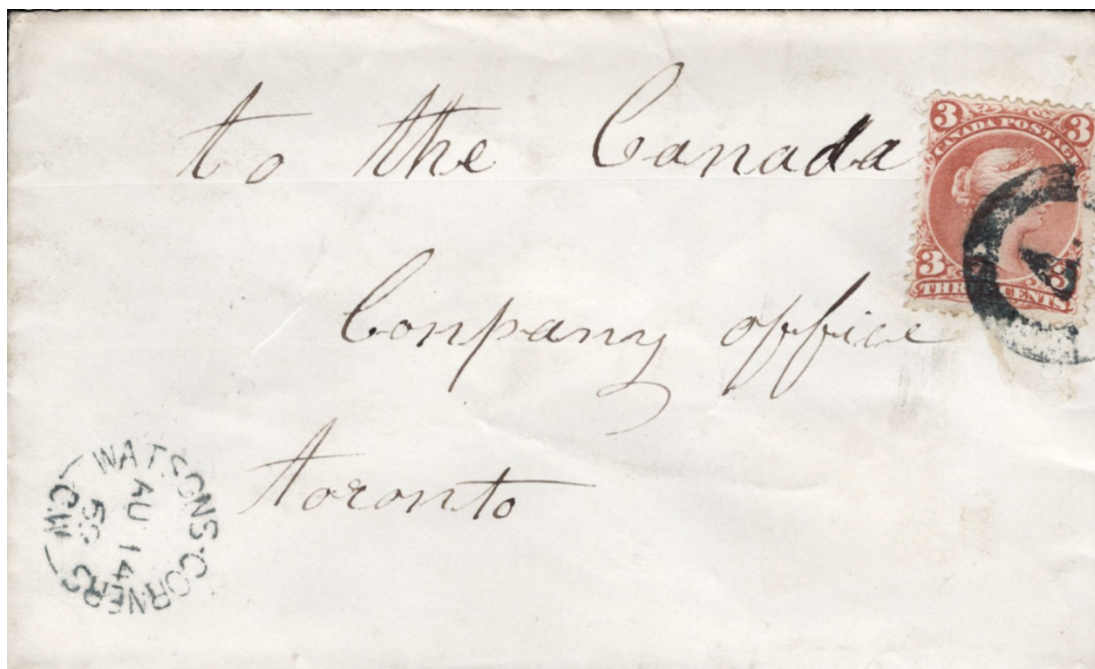 to the Canada
Conpany office
toronto
3 CANADA POSTAGE 3
3 3
THREE CENTS
WATSONS-CORNERS
AU 14
C.W